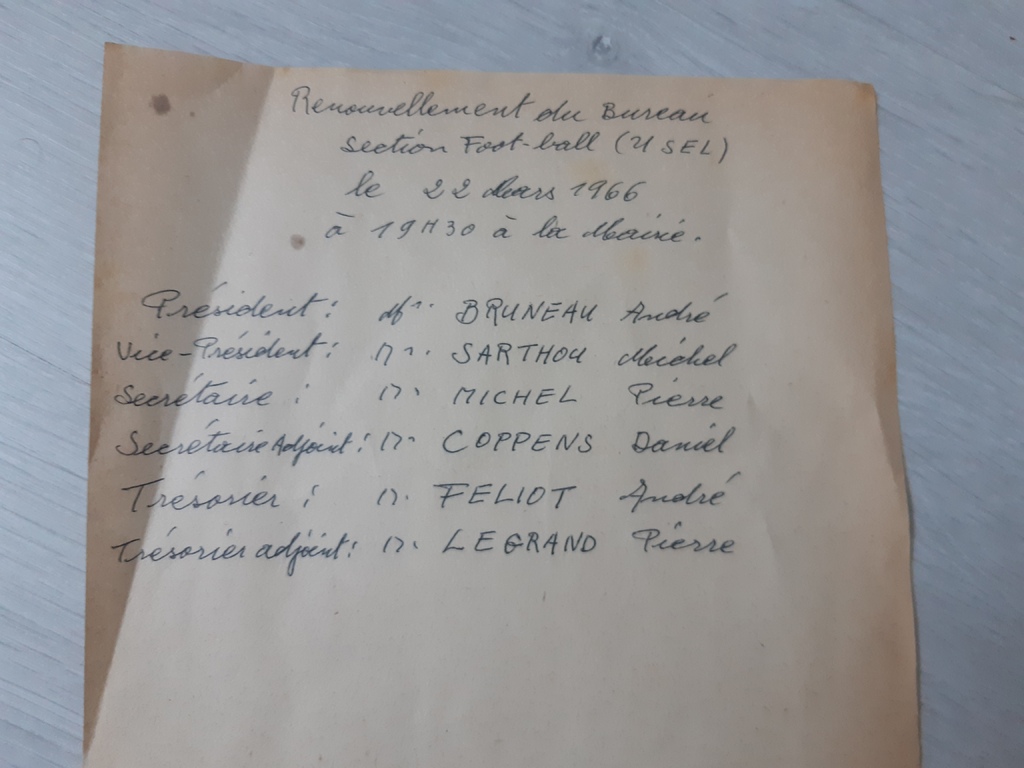 Renouvellement du Bureau
Section Foot-ball (USEL)
le 22 Mars 1966
à 19H30 à la Mairie.
Président : Mr. BRUNEAU André
Vice-Président : Mr. SARTHOU Michel
Secrétaire : Mr. MICHEL Pierre
Secrétaire Adjoint : Mr. COPPENS Daniel
Trésorier : M. FELIOT André
Trésorier adjoint : Mr. LEGRAND Pierre